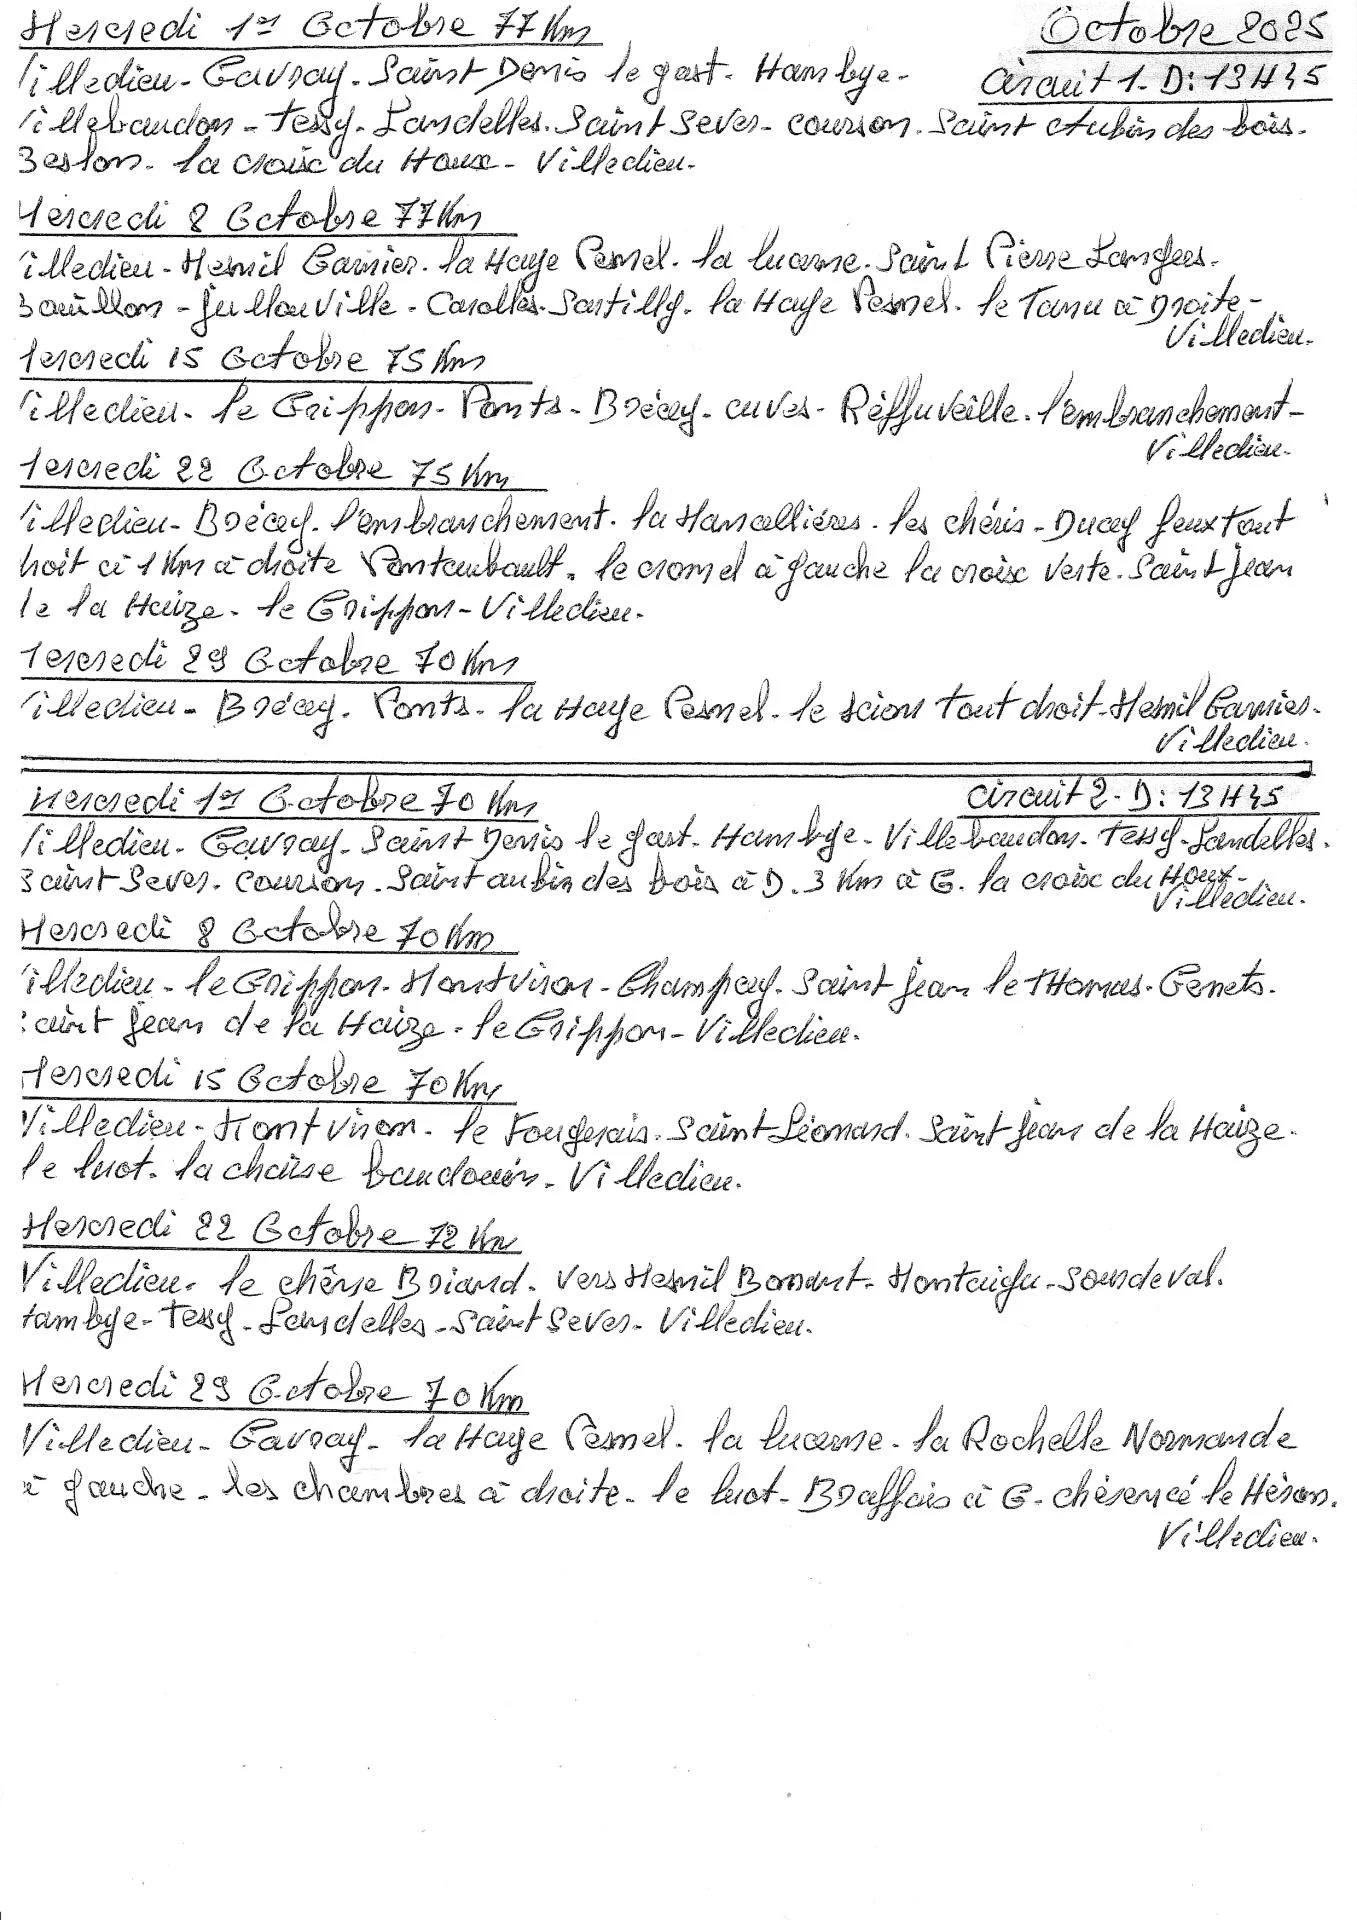 Mercredi 1er Octobre 77 Km
Octobre 2025
Villedieu - Gavray - Saint Denis le gast - Hambye -
Circuit 1 - D : 13 H 45
Villebaudon - Tessy - Landelles - Saint Sever - Courson - Saint Aubin des bois -
Beslon - la croix du Houx - Villedieu.
Mercredi 8 Octobre 77 Km
Villedieu - Mesnil Garnier - la Haye Pesnel - la lucerne - Saint Pierre Langers -
Bouillon - Jullouville - Carolles - Sartilly - la Haye Pesnel - le Tanu à Droite -
Villedieu.
Mercredi 15 Octobre 75 Km
Villedieu - le Grippon - Ponts - Brécey - cuves - Réffuveille - l'embranchement -
Villedieu.
Mercredi 22 Octobre 75 Km
Villedieu - Brécey - l'embranchement - la Mancellières - les chéris - Ducey feux tout
droit à 1 Km à droite Pontaubault - le cromel à gauche la croix verte - Saint Jean
de la Haize - le Grippon - Villedieu.
Mercredi 29 Octobre 70 Km
Villedieu - Brécey - Ponts - la Haye Pesnel - le scion tout droit - Mesnil Garnier -
Villedieu.
Mercredi 1er Octobre 70 Km
Circuit 2 - D : 13 H 45
Villedieu - Gavray - Saint Denis le gast - Hambye - Villebaudon - Tessy - Landelles -
Saint Sever - Courson - Saint aubin des bois à D. 3 Km à G. la croix du Houx -
Villedieu.
Mercredi 8 Octobre 70 Km
Villedieu - le Grippon - Montviron - Champcey - Saint Jean le THomas - Genets -
Saint Jean de la Haize - le Grippon - Villedieu.
Mercredi 15 Octobre 70 Km
Villedieu - Montviron - le Fougerais - Saint Léonard - Saint Jean de la Haize -
le luot - la chaise baudouin - Villedieu.
Mercredi 22 Octobre 72 Km
Villedieu - le chêne Briand - vers Mesnil Bonant - Montaigu - Sourdeval -
Hambye - Tessy - Landelles - Saint Sever - Villedieu.
Mercredi 29 Octobre 70 Km
Villedieu - Gavray - la Haye Pesnel - la lucerne - la Rochelle Normande
à gauche - les chambres à droite - le luot - Braffais à G - chérencé le Héron -
Villedieu.